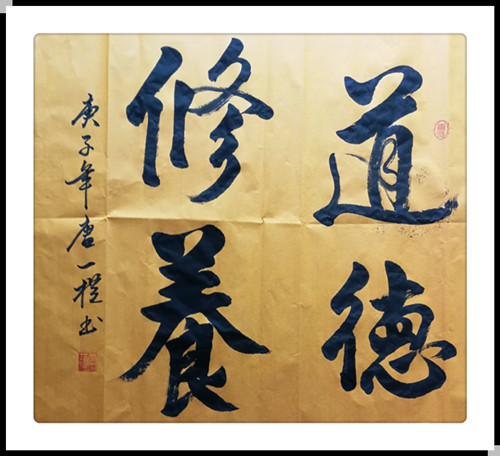 道德
修養
庚子年唐一樫书